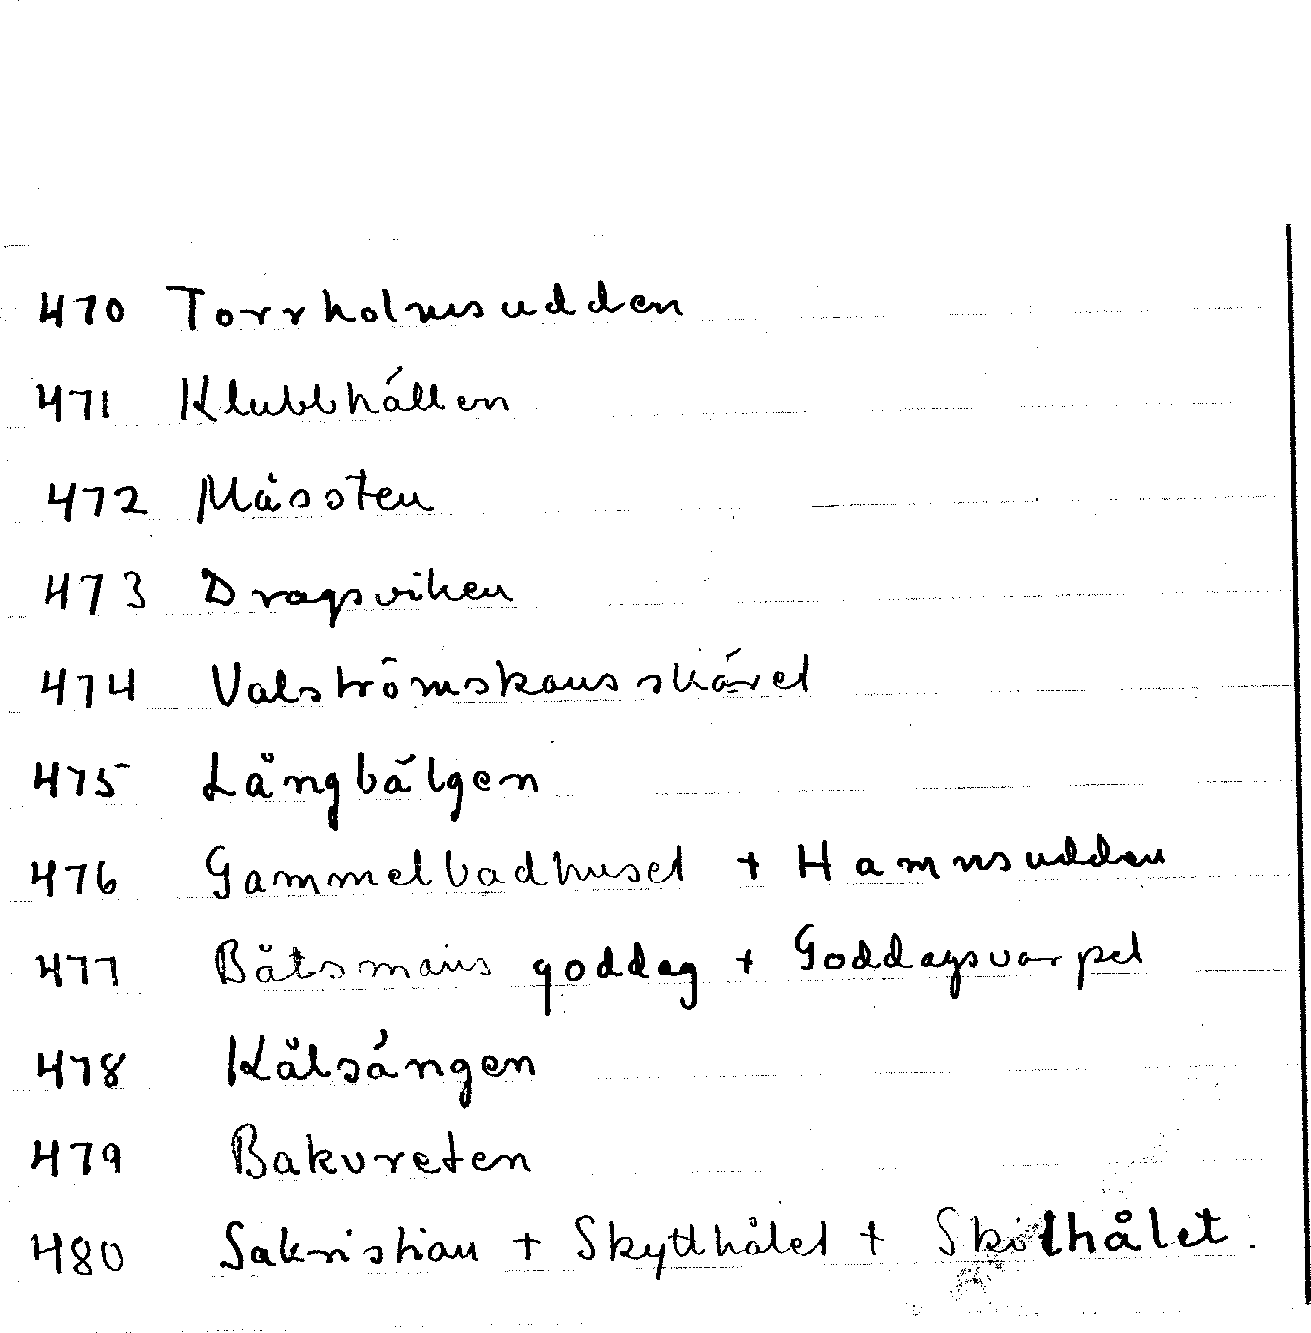 470 Torrholmsudden
471 Klubbhällen
472 Måssten
473 Dragsviken
474 Valströmskansskäret
475 Långbälgen
476 Gammelbadhuset + Hamnsudden
477 Båtsmans goddag + Goddagsvarpet
478 Kålsängen
479 Bakvreten
480 Sakristian + Skytthålet +